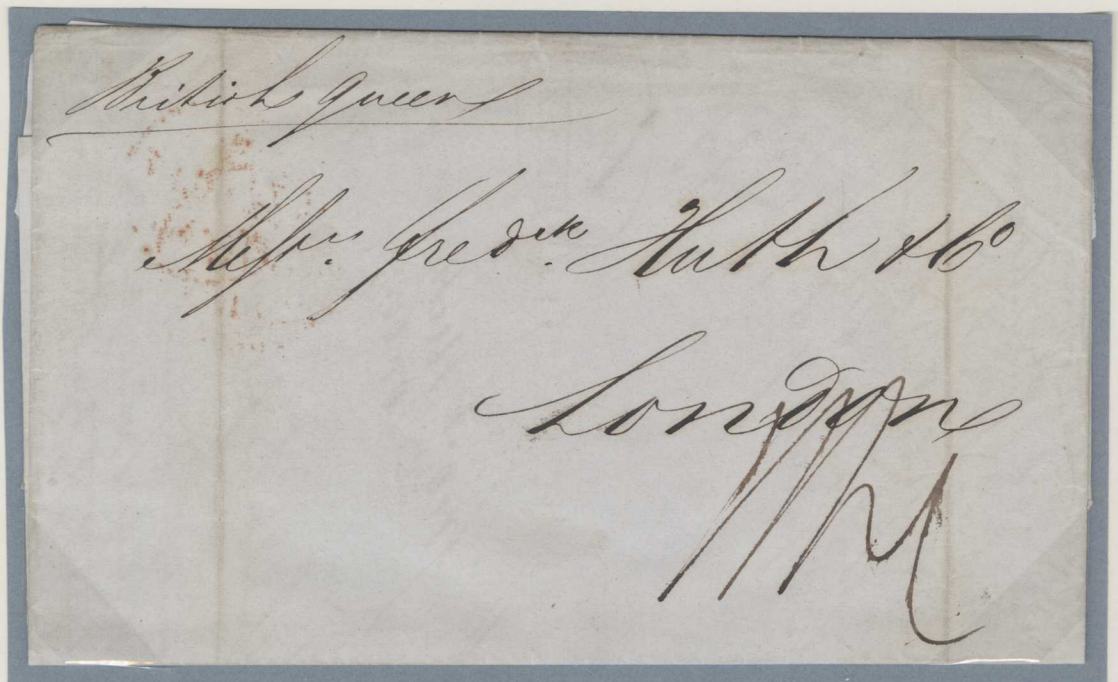 British Queen
Messrs. Fredk. Huth & Co
London